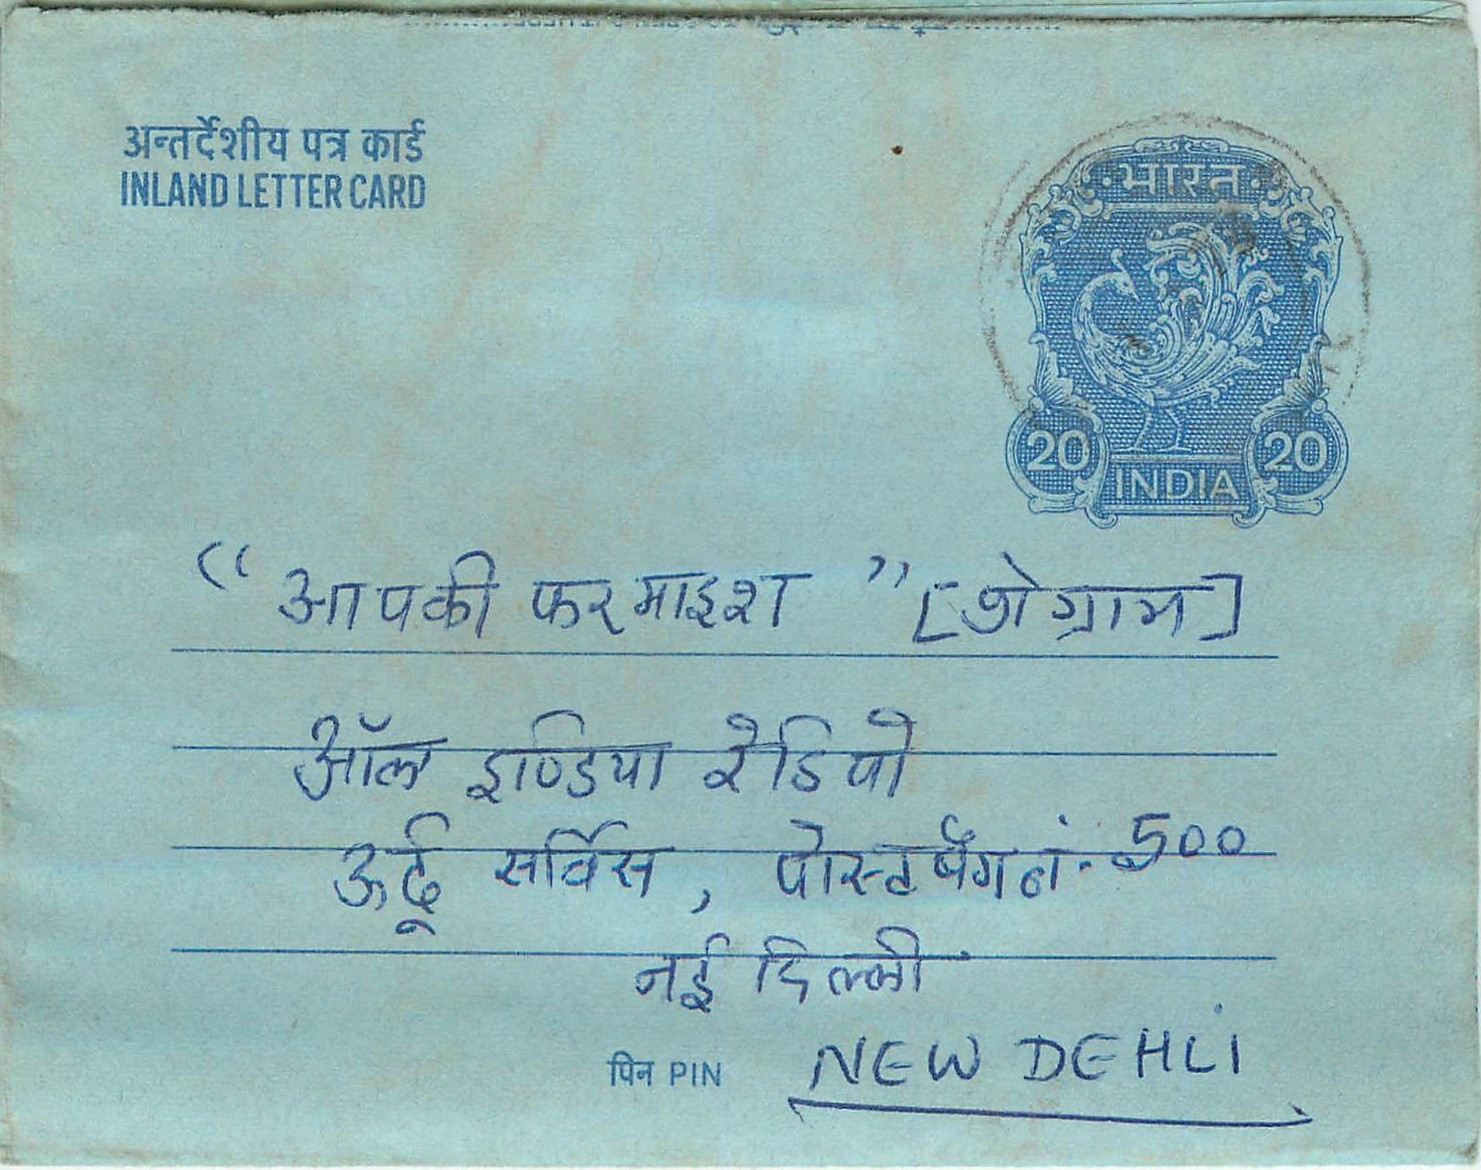 अन्तर्देशीय पत्र कार्ड
INLAND LETTER CARD
भारत
20 20
INDIA
“आपकी फरमाइश” [प्रोग्राम]
ऑल इण्डिया रेडियो
ऊर्दू सर्विस, पोस्ट बैग नं. 500
नई दिल्ली
पिन PIN NEW DEHLI